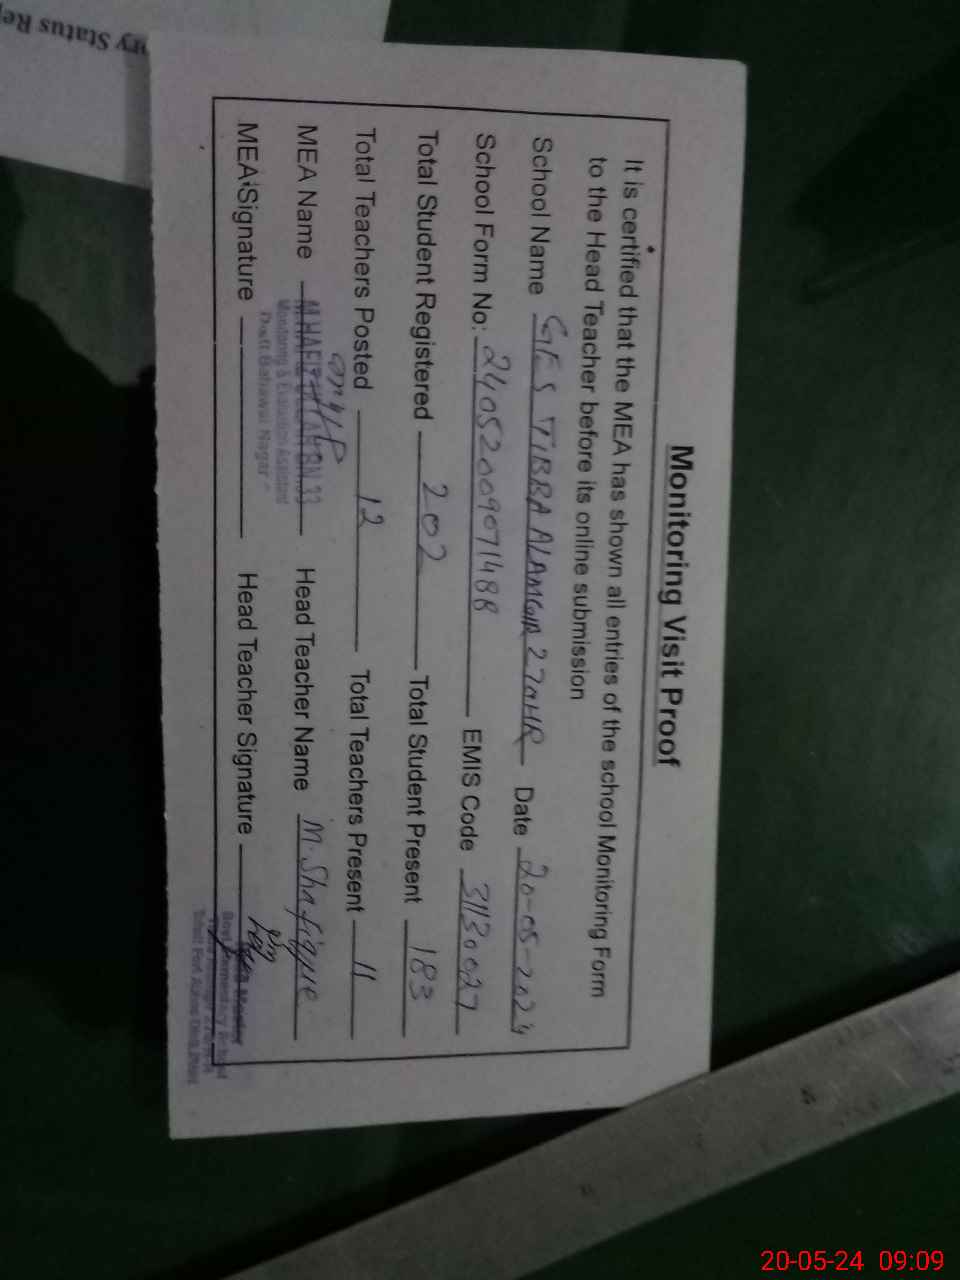 ry Status Rep
Monitoring Visit Proof
It is certified that the MEA has shown all entries of the school Monitoring Form
to the Head Teacher before its online submission
School Name GES TIBBA ALAMGIR 270HR Date 20-05-2024
School Form No: 24052009071488 EMIS Code 31130027
Total Student Registered 202 Total Student Present 183
Total Teachers Posted 12 Total Teachers Present 11
MEA Name Head Teacher Name M. Shafique
Monitoring & Evaluation Assistant
Distt Bahawal Nagar
MEA Signature Head Teacher Signature
20-05-24 09:09